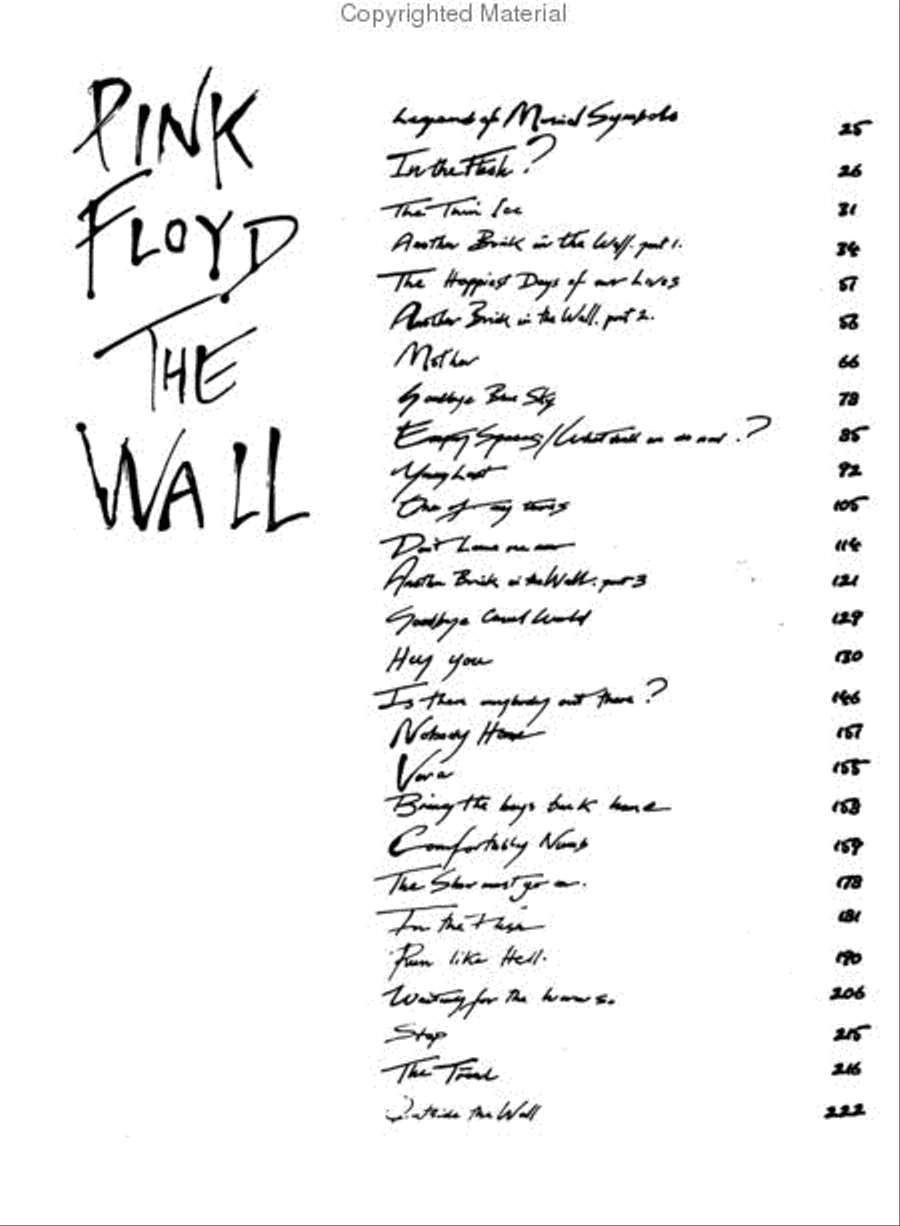 Copyrighted Material
PINK
FLOYD
THE
WALL
Legend of Musical Symbols 25
In the Flesh? 26
The Thin Ice 31
Another Brick in the Wall. part 1. 34
The Happiest Days of our Lives 51
Another Brick in the Wall. part 2. 56
Mother 66
Goodbye Blue Sky 78
Empty Spaces/What shall we do now? 85
Young Lust 92
One of my turns 105
Don't Leave me now 114
Another Brick in the Wall. part 3 121
Goodbye Cruel World 129
Hey you 130
Is there anybody out there? 146
Nobody Home 151
Vera 155
Bring the boys back home 158
Comfortably Numb 159
The Show must go on. 178
In the Flesh 181
Run like Hell. 190
Waiting for the worms. 206
Stop 215
The Trial 216
Outside the Wall 222